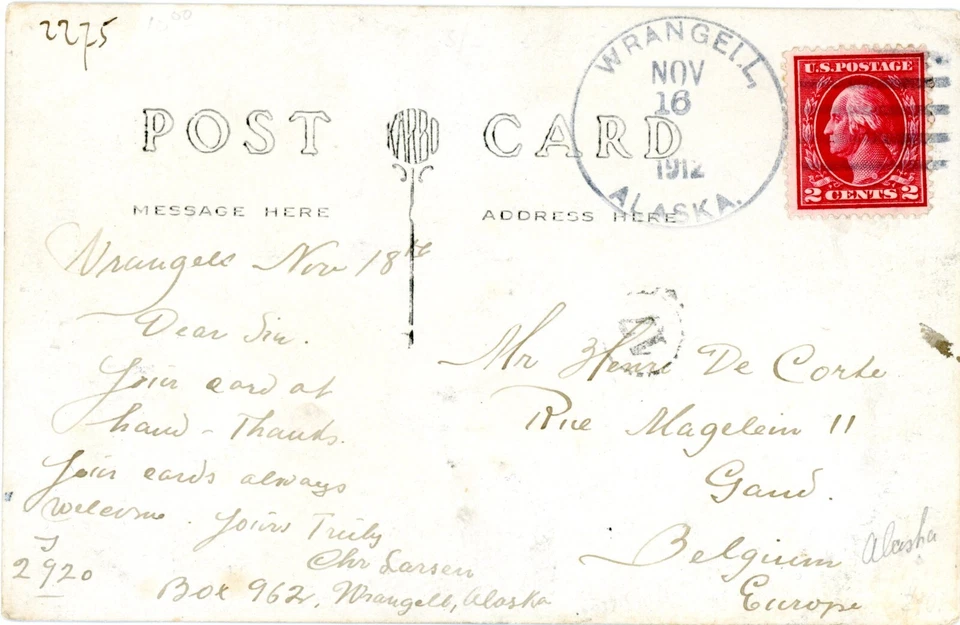 2275
WRANGELL,
NOV
16
1912
ALASKA.
U.S. POSTAGE
2 CENTS 2
POST CARD
KARBO
MESSAGE HERE
ADDRESS HERE
Wrangell Nov 18th
Dear Sir.
Your card at
hand - Thanks.
Your cards always
welcome. Yours Truly
Chr Larsen
2920
Box 962, Wrangell, Alaska
Mr Henri De Corte
Rue Magelein 11
Gand.
Belgium
Europe
Alaska